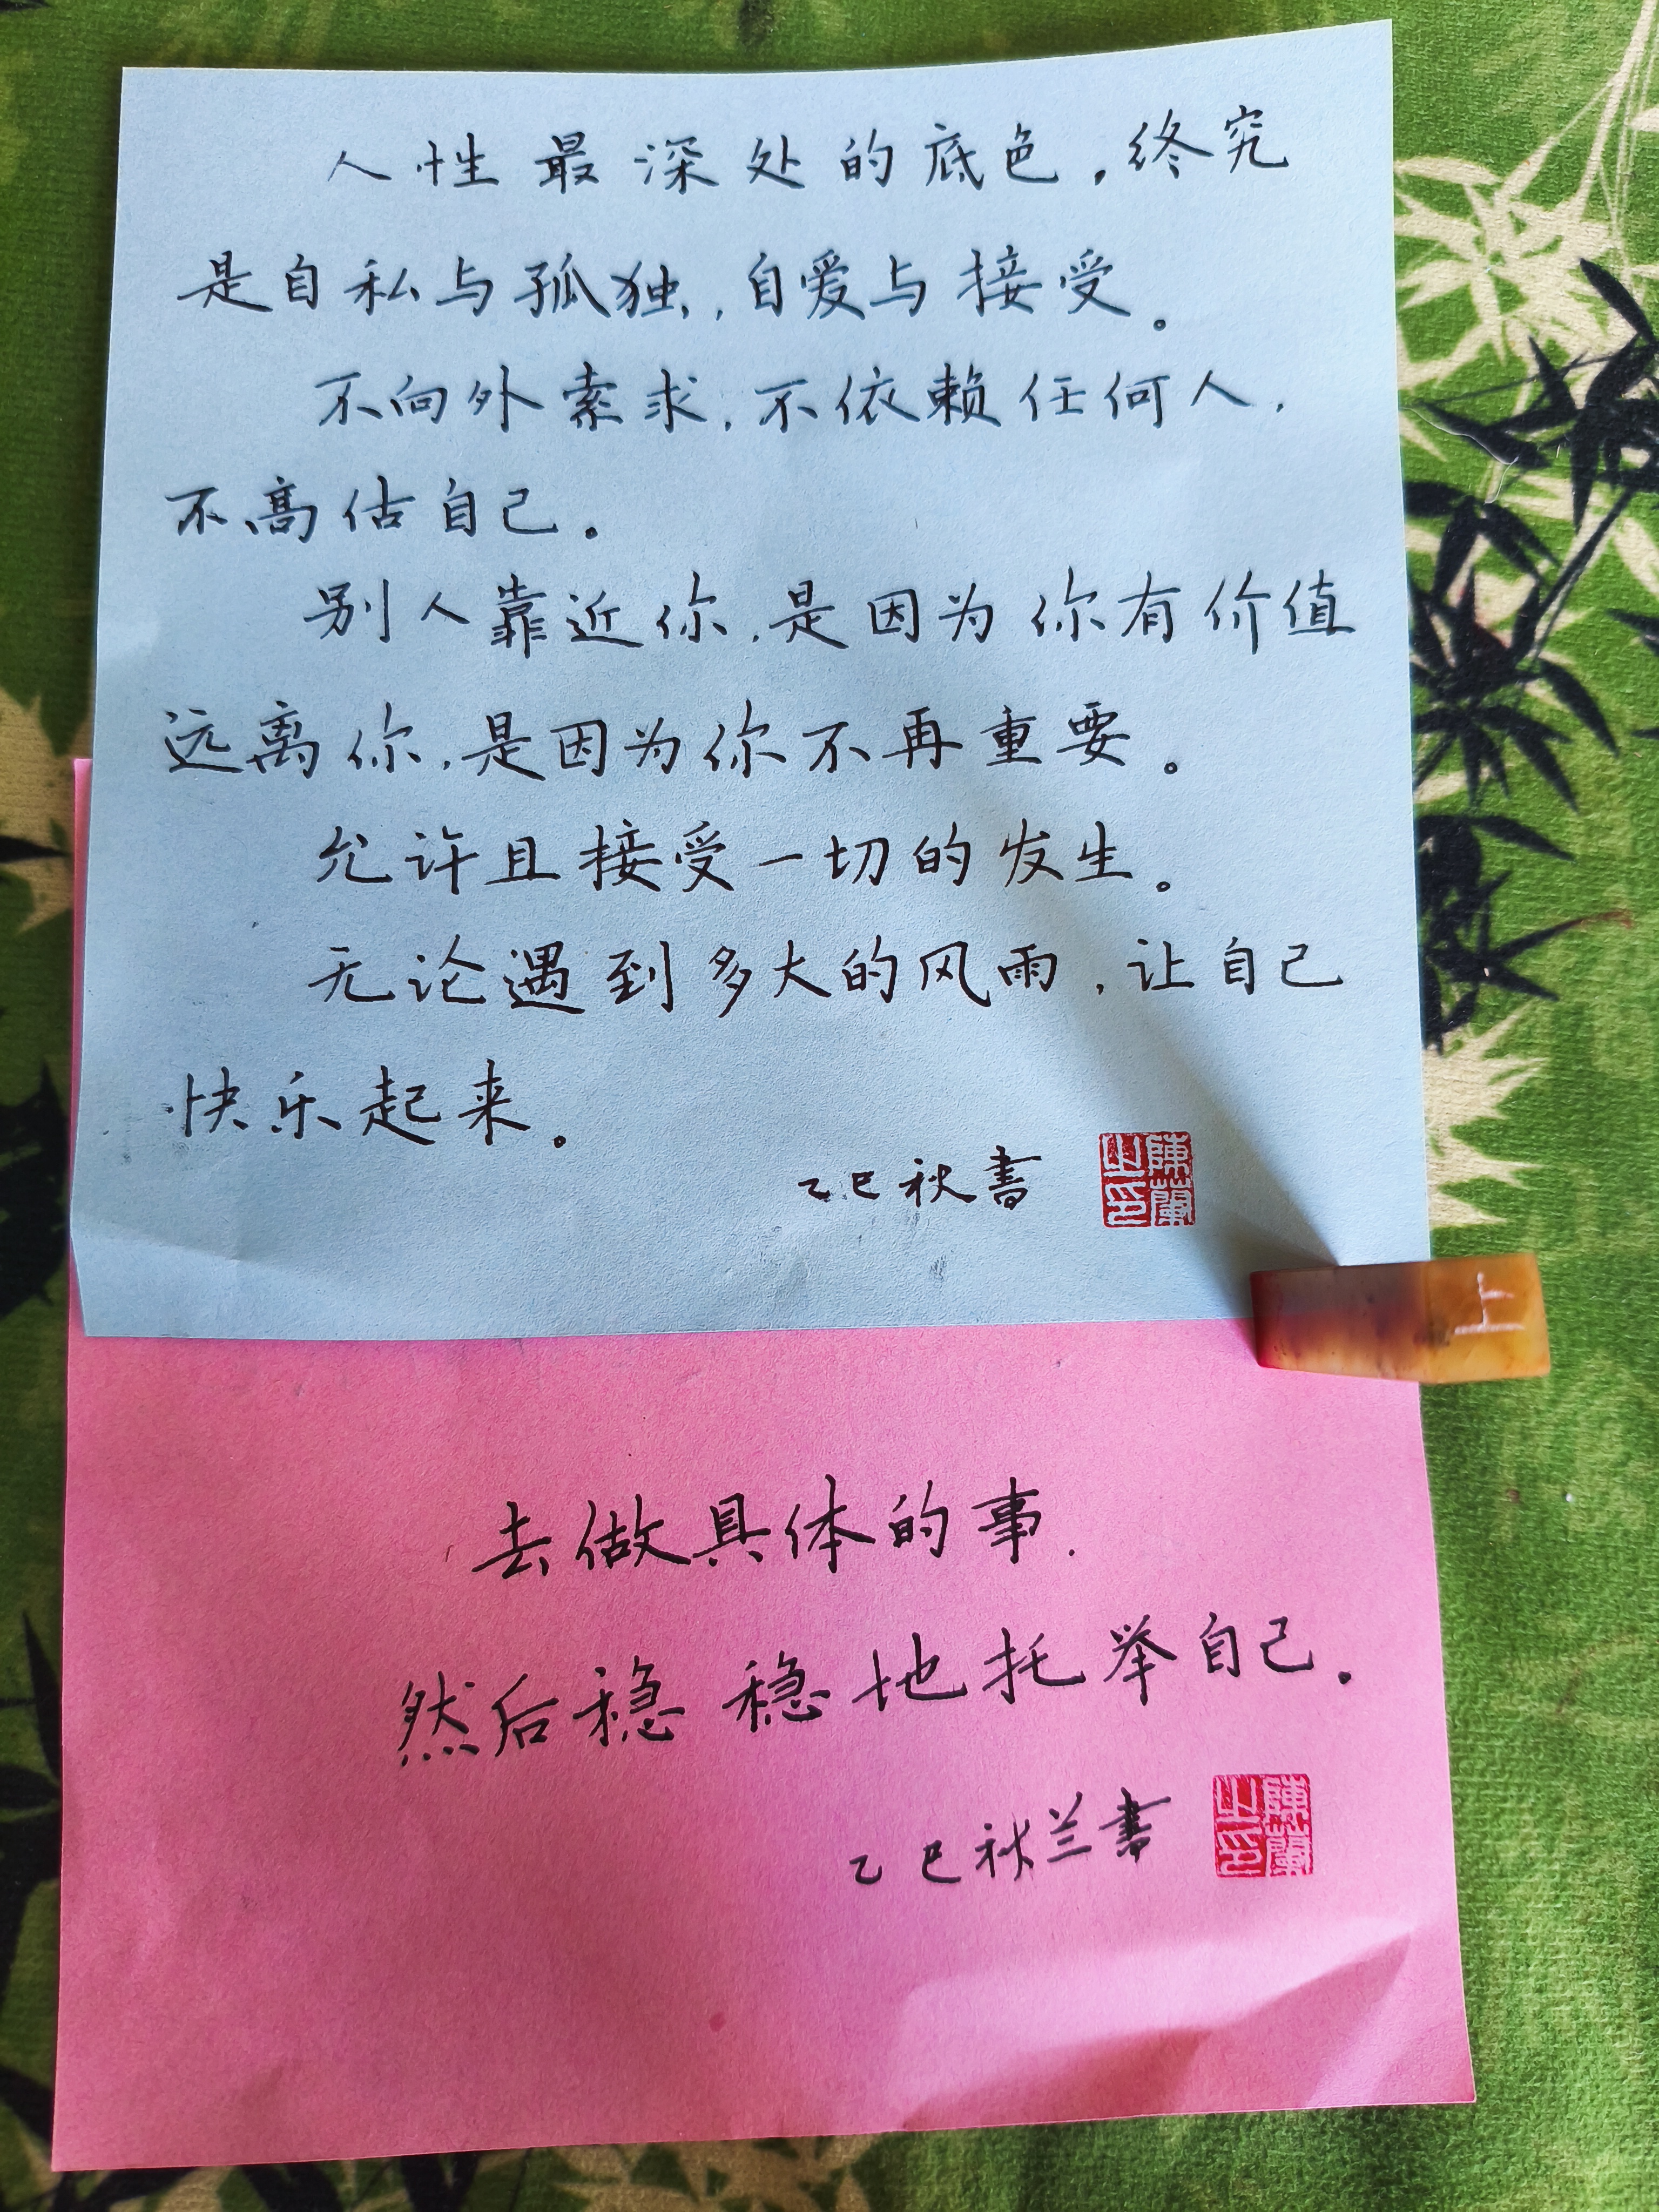 人性最深处的底色，终究
是自私与孤独，自爱与接受。
不向外索求，不依赖任何人，
不高估自己。
别人靠近你，是因为你有价值
远离你，是因为你不再重要。
允许且接受一切的发生。
无论遇到多大的风雨，让自己
快乐起来。
乙巳秋书
陳蘭之印
上
去做具体的事.
然后稳稳地托举自己.
乙巳秋兰书
陳蘭之印